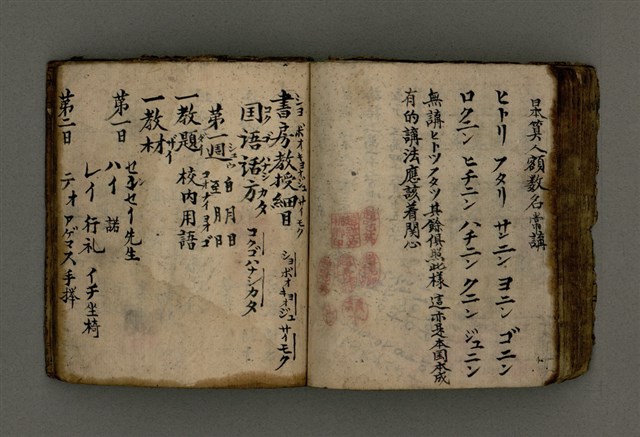 是算人額数名常講
ヒトリ フタリ サニン ヨニン ゴニン
ロクニン ヒチニン ハチニン クニン ジュニン
無講ヒトツフタツ其餘俱照此樣 這亦是本国本成
有的講法應該着関心
書房教授細目
ショボオキョオジュサイモク
ショボオキョオジュサイモク
国语话方
コクゴハナシカタ
コクゴハナシカタ
第一週 自月日
至月日
一教題 校内用語
コオナイヨオゴ
一教材
ザイ
第一日 センセイ先生
ハイ 諾
レイ 行礼 イチ坐椅
第二日 テオアゲマス手擇